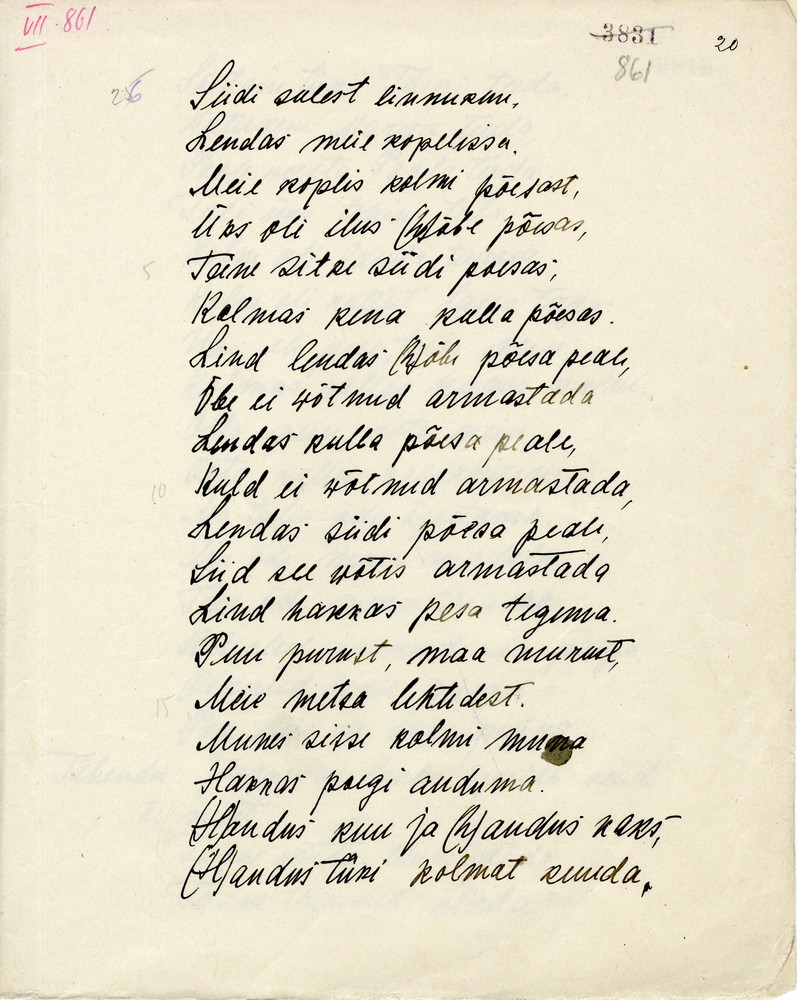 VII 861
3831
20
861
26
Siidi sulest linnukene,
Lendas meie kopelissa.
Meie koplis kolmi põesast,
Üks oli ilus (h)õbe põesas,
5 Teine sitke siidi poesas,
Kolmas kena kulla põesas.
Lind lendas (h)õbe põesa peale,
Õbe ei wõtnud armastada
Lendas kulla põesa peale,
10 Kuld ei wõtnud armastada,
Lendas siidi põesa peale,
Siid see wõtis armastada
Lind hakkas pesa tegema.
Puu purust, maa murust,
15 Meie metsa lehtedest.
Munes sisse kolmi muna
Hakkas poegi auduma.
(H)audus kuu ja (h)audus kaks,
(H)audus tüki kolmat kuuda.